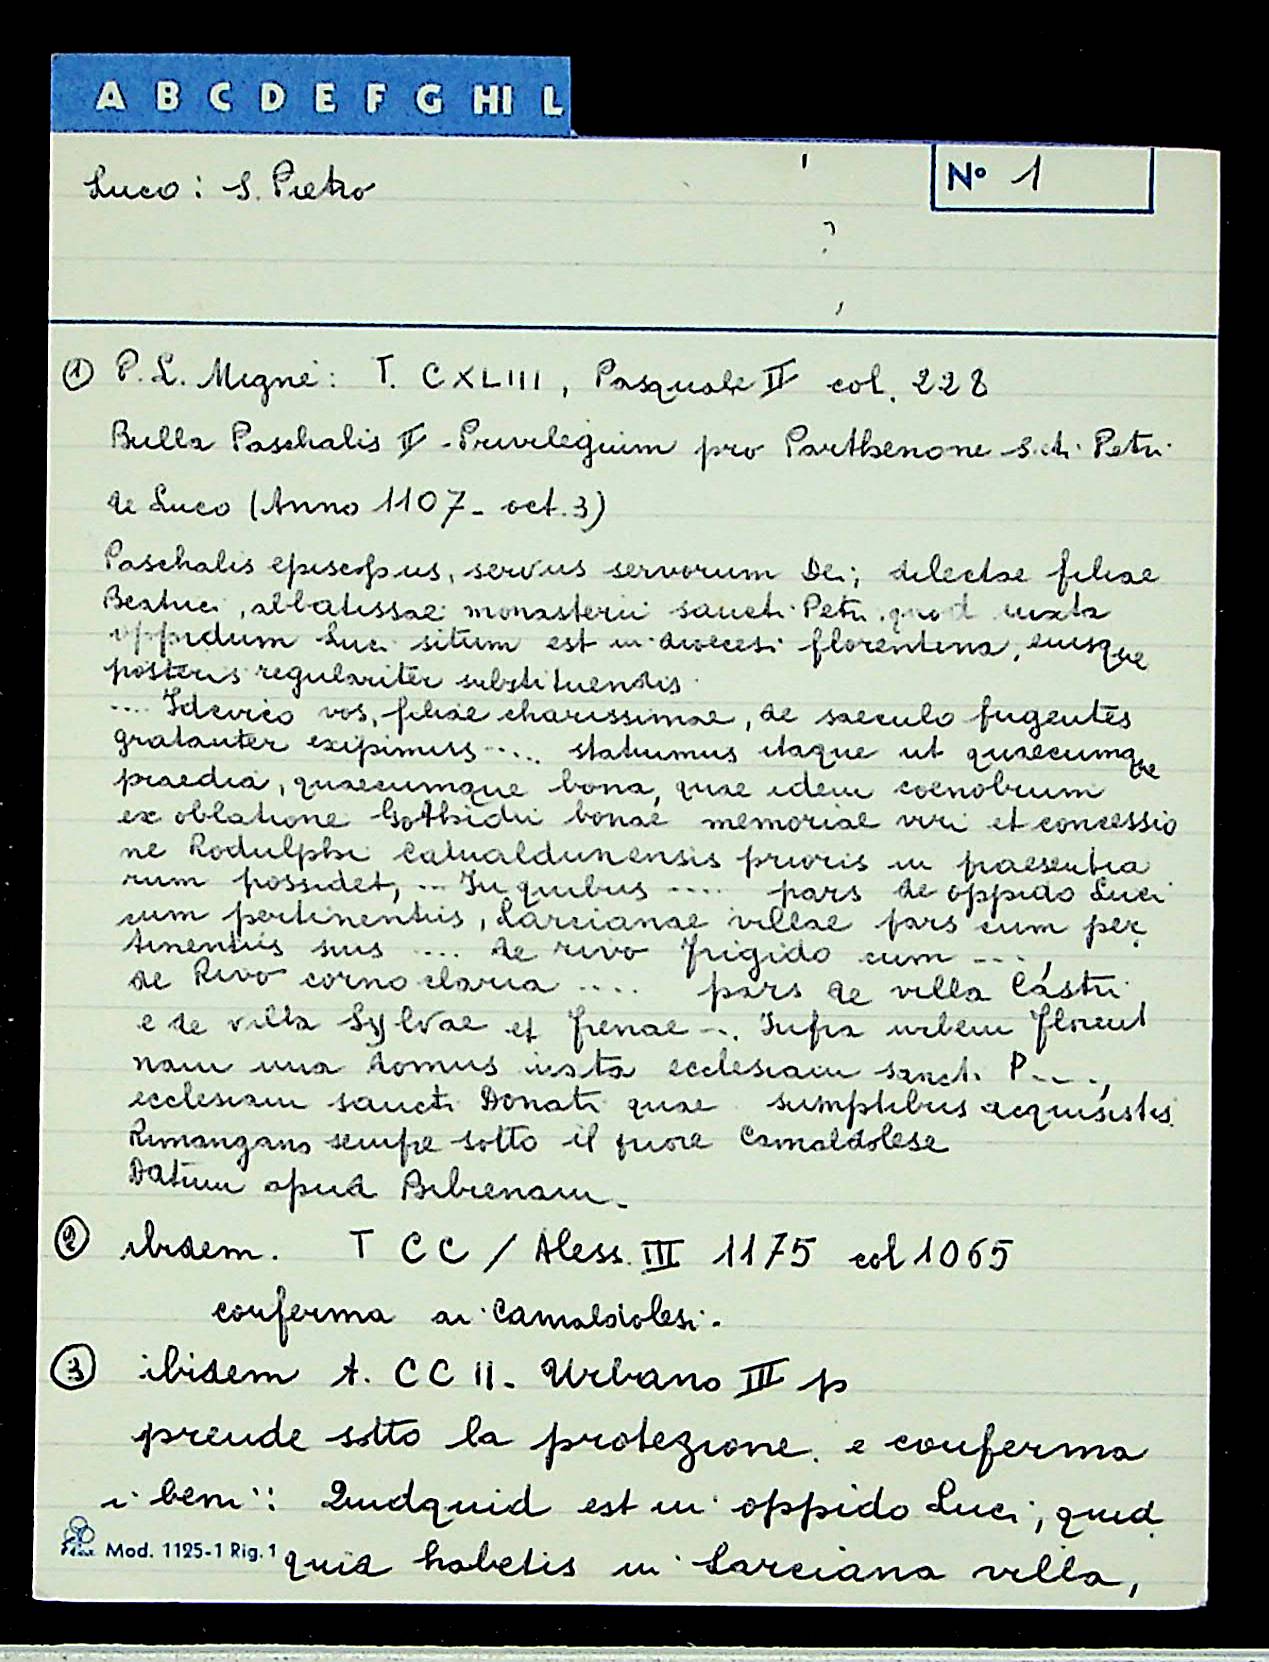 A B C D E F G HI L
Luco: S. Pietro
N° 1
① P. L. Migne: T. CXLIII, Pasquale II col. 228
Bulla Paschalis II - Privilegium pro Parthenone S.cti Petri
de Luco (Anno 1107 - oct. 3)
Paschalis episcopus, servus servorum Dei; dilectae filiae
Beatrici, abbatissae monasterii sancti Petri quod iuxta
oppidum Luci situm est in dioecesi florentina, eiusque
posteris regulariter substituendis.
.... Idcirco vos, filiae charissimae, de saeculo fugentes
gratanter excipimus .... statuimus itaque ut quaecumque
praedia, quaecumque bona, quae idem coenobium
ex oblatione Gothidii bonae memoriae viri et concessio
ne Rodulphi Camaldunensis prioris in praesentia
rum possidet, ... In quibus .... pars de oppido Luci
cum pertinentiis, Larcianae villae pars cum per
tinentiis suis .... de rivo frigido cum ...,
de Rivo cornoclaria .... pars de villa Castri
e de villa Sylvae et frenae ... Infra urbem florent
nam una domus iuxta ecclesiam sancti P....,
ecclesiam sancti Donati quae sumptibus acquisistis.
Rimangano sempre sotto il priore Camaldolese
Datum apud Bibienam.
② ibidem. T CC / Aless. III 1175 col 1065
conferma ai Camaldolesi.
③ ibidem t. CC II. Urbano III p
prende sotto la protezione e conferma
i beni: Quidquid est in oppido Luci, quid
quid habetis in Larciana villa,
Mod. 1125-1 Rig. 1